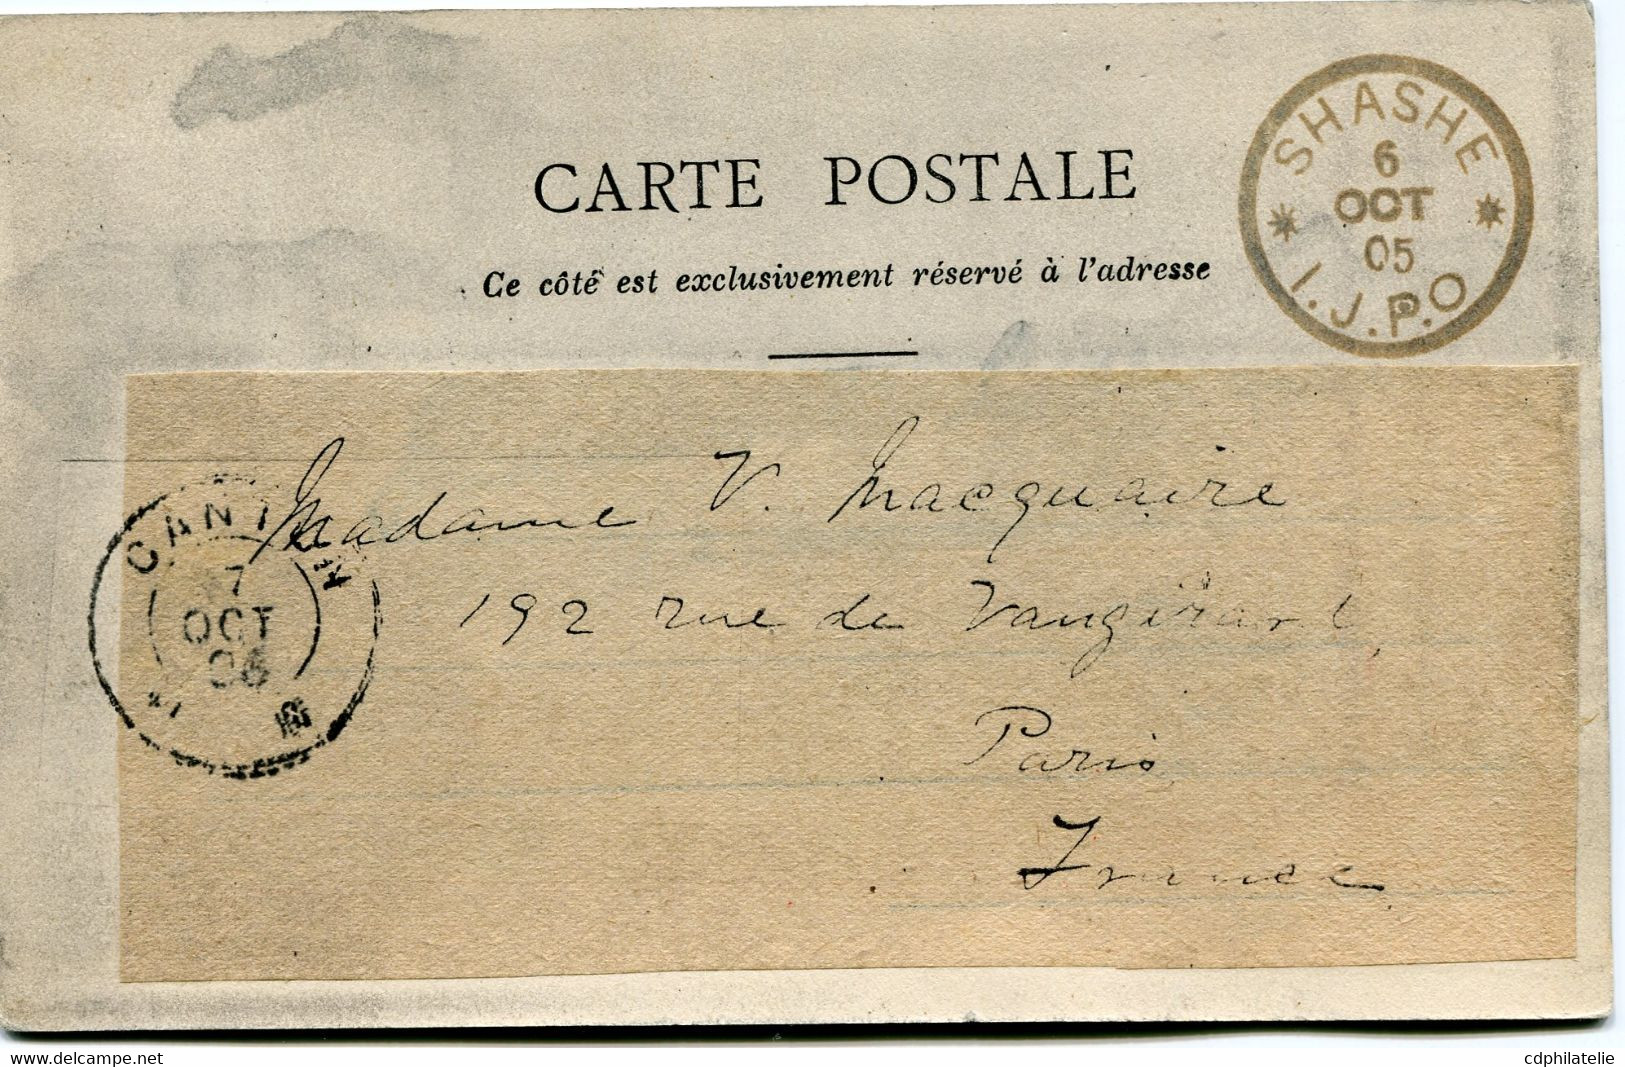 CARTE POSTALE
Ce côté est exclusivement réservé à l'adresse
SHASHE
6
OCT
05
I.J.P.O
Madame V. Macquaire
192 rue de Vaugirard,
Paris
France
CANTON
7
OCT
05
delcampe.net
cdphilatelie